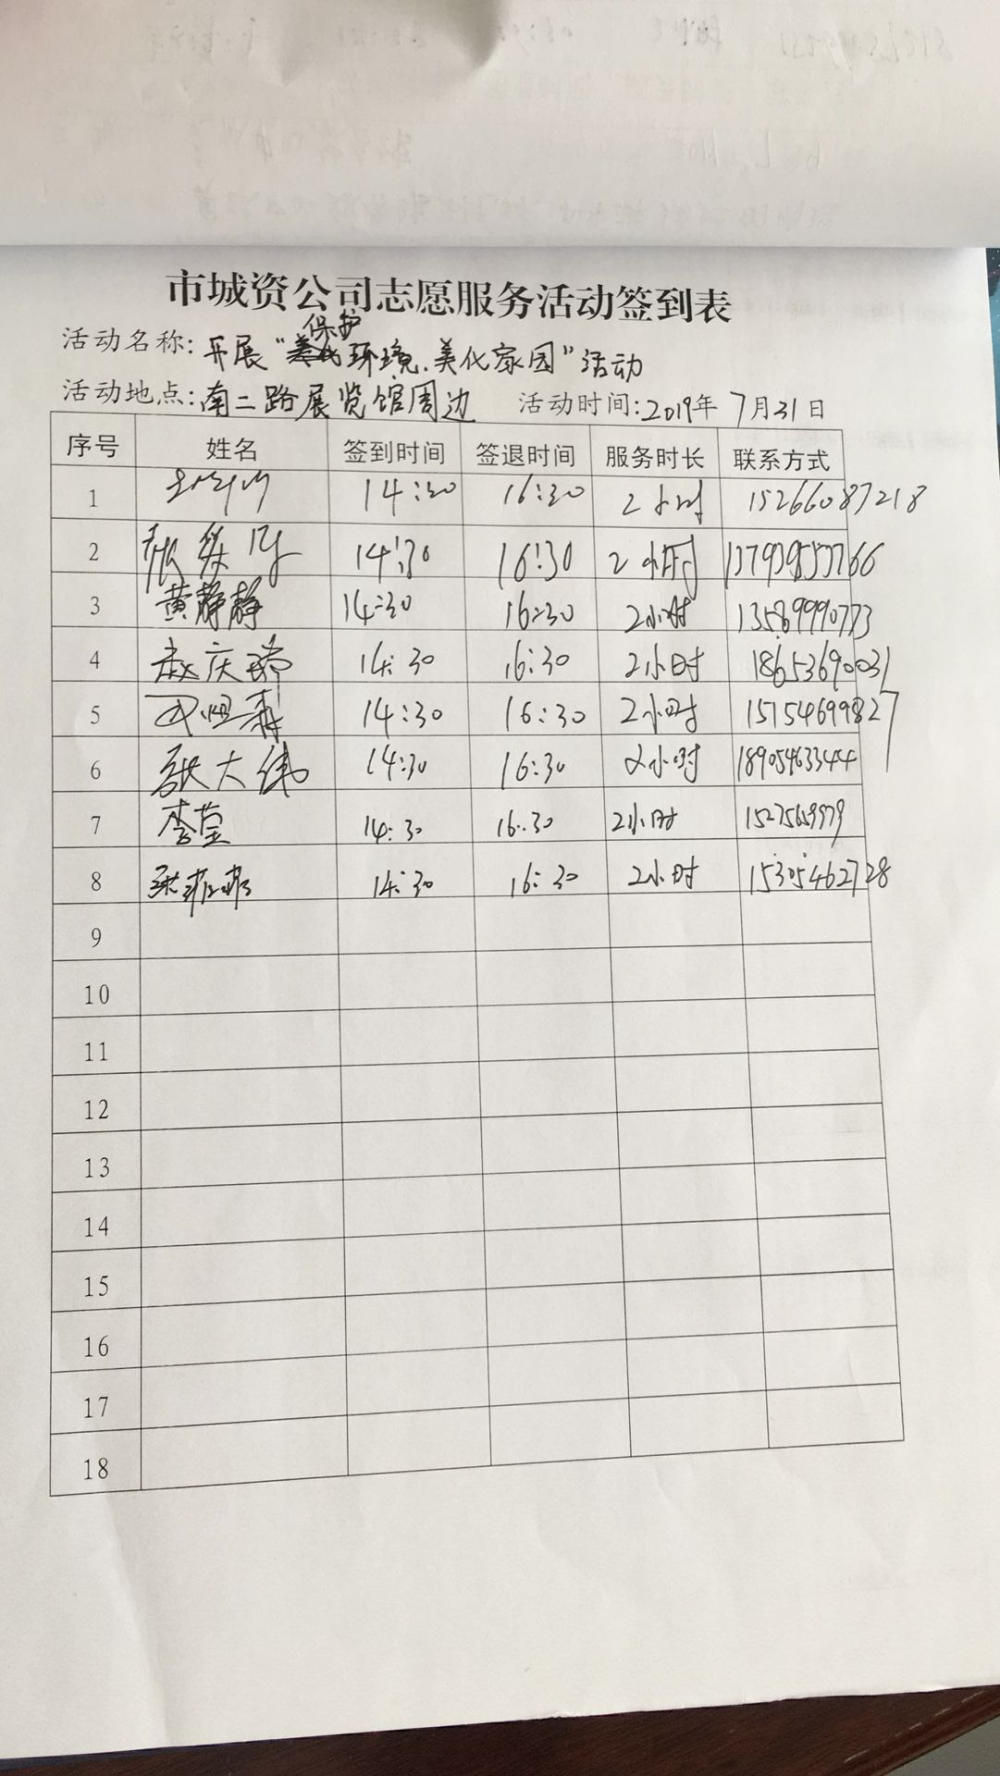 市城资公司志愿服务活动签到表
活动名称: 开展“保护环境.美化家园”活动
活动地点: 南二路展览馆周边 活动时间: 2019年 7月31日
序号 姓名 签到时间 签退时间 服务时长 联系方式
1 14:30 16:30 2小时 15266087218
2 14:30 16:30 2小时
3 黄静静 14:30 16:30 2小时 13589990773
4 赵庆瑞 14:30 16:30 2小时 18653690031
5 14:30 16:30 2小时 15754699827
6 张大伟 14:30 16:30 2小时 18905463344
7 李莹 14:30 16:30 2小时
8 张菲菲 14:30 16:30 2小时 15305462728
9
10
11
12
13
14
15
16
17
18